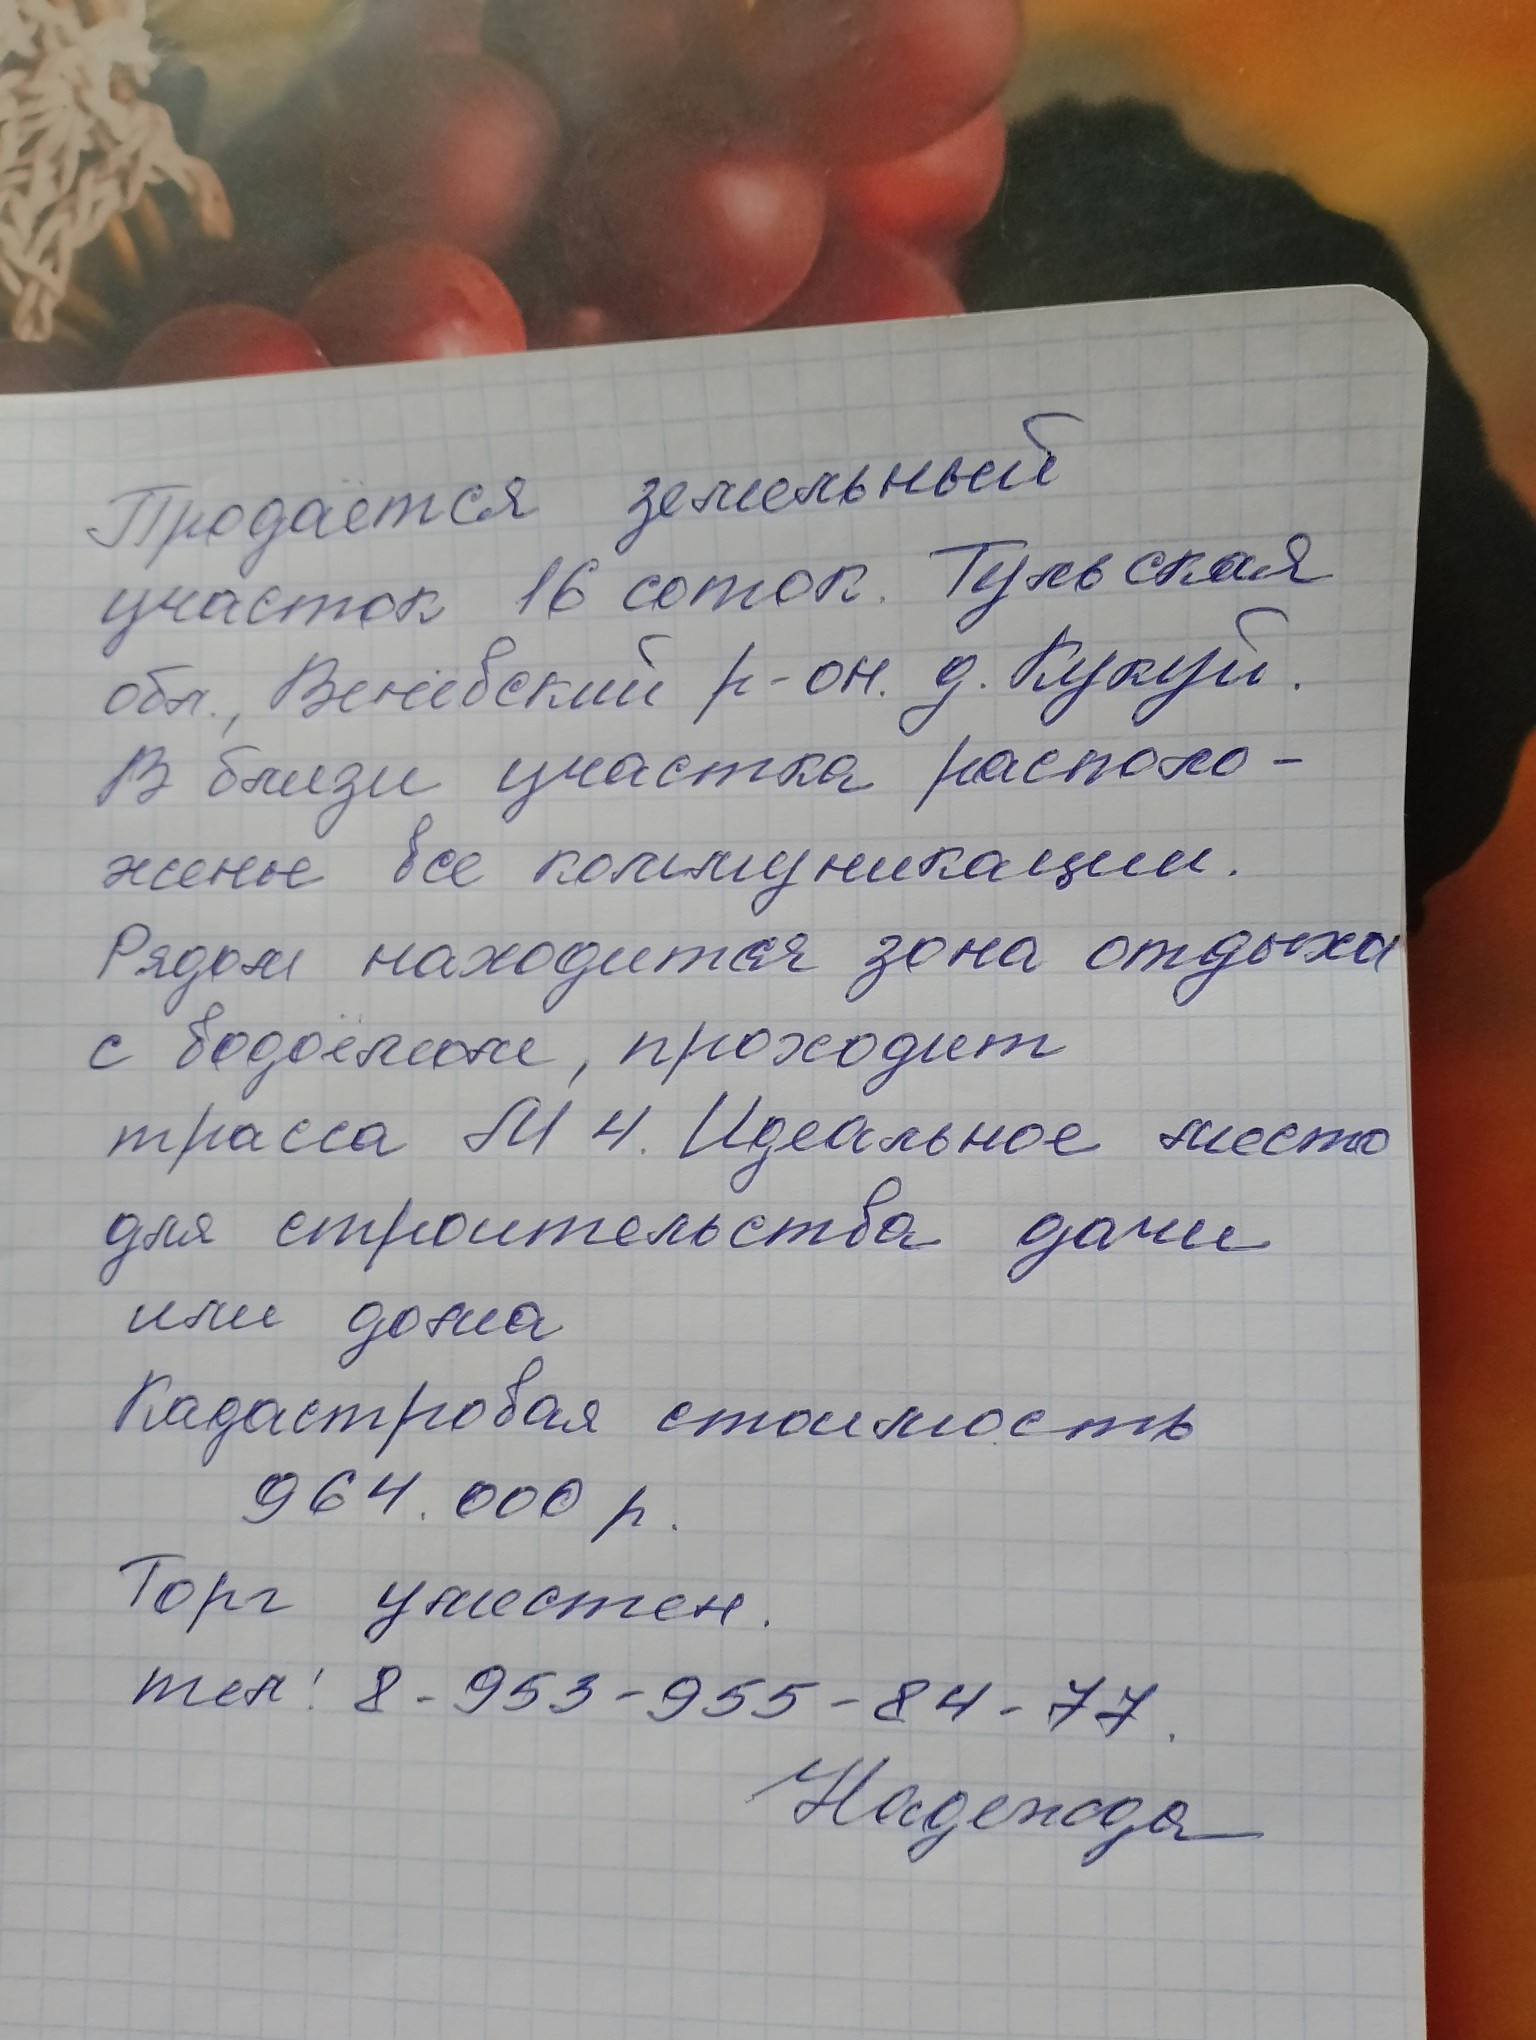 Продаётся земельный
участок 16 соток. Тульская
обл., Венёвский р-он. д. Кукуй.
В близи участка располо-
жены все коммуникации.
Рядом находится зона отдыха
с водоёмом, проходит
трасса М 4. Идеальное место
для строительства дачи
или дома
Кадастровая стоимость
964.000 р.
Торг уместен.
тел: 8-953-955-84-77.
Надежда